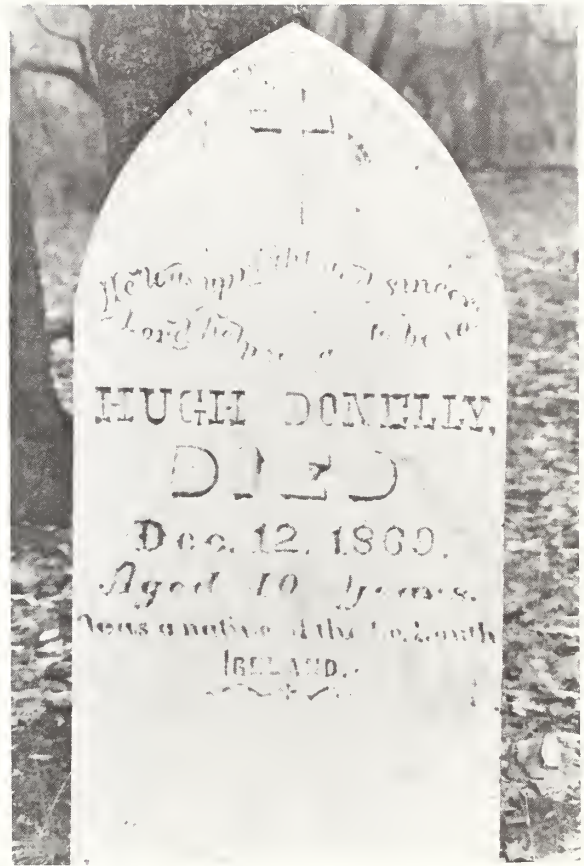 He was upright and sincere,
Lord help to be so
HUGH DONELLY,
DIED
Dec. 12, 1869.
Aged 40 Years.
was a native of the Co. Louth
IRELAND.